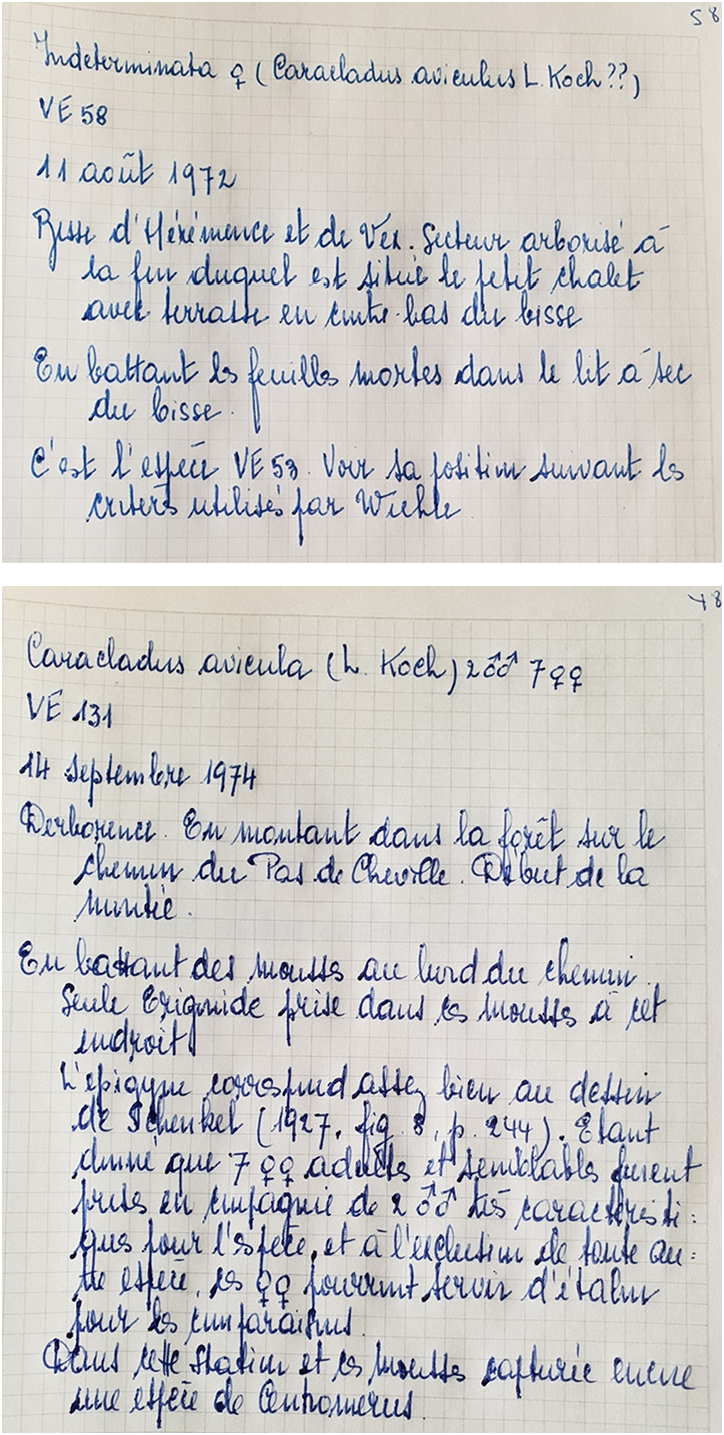 58
Indeterminata ♀ (Caracladus aviculus L. Koch??)
VE 58
11 août 1972
Bisse d'Hérémence et de Vex. Secteur arborisé à
la fin duquel est situé le petit chalet
avec terrasse en contre-bas du bisse
En battant les feuilles mortes dans le lit à sec
du bisse.
C'est l'espèce VE 53. Voir sa position suivant les
critères utilisés par Wiehle
Caracladus avicula (L. Koch) 2 ♂♂ 7 ♀♀
VE 131
14 septembre 1974
Derborence. En montant dans la forêt sur le
chemin du Pas de Cheville. Début de la
montée.
En battant des mousses au bord du chemin.
Seule Erigonide prise dans ces mousses à cet
endroit.
L'épigyne correspond assez bien au dessin
de Schenkel (1927, fig. 8, p. 244). Etant
donné que 7 ♀♀ adultes et semblables furent
prises en compagnie de 2 ♂♂ très caractéristi=
ques pour l'espèce, et à l'exclusion de toute au=
tre espèce, ces ♀♀ pourront servir d'étalon
pour les comparaisons.
Dans cette station et ces mousses capturée encore
une espèce de Centromerus.